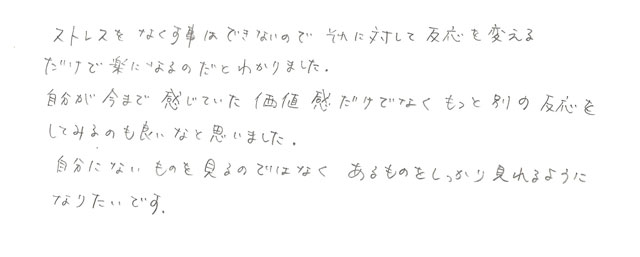 ストレスをなくす事はできないので それに対して反応を変える
だけで楽になるのだとわかりました。
自分が今まで感じていた価値感だけでなくもっと別の反応を
してみるのも良いなと思いました。
自分にないものを見るのではなく あるものをしっかり見れるように
なりたいです。